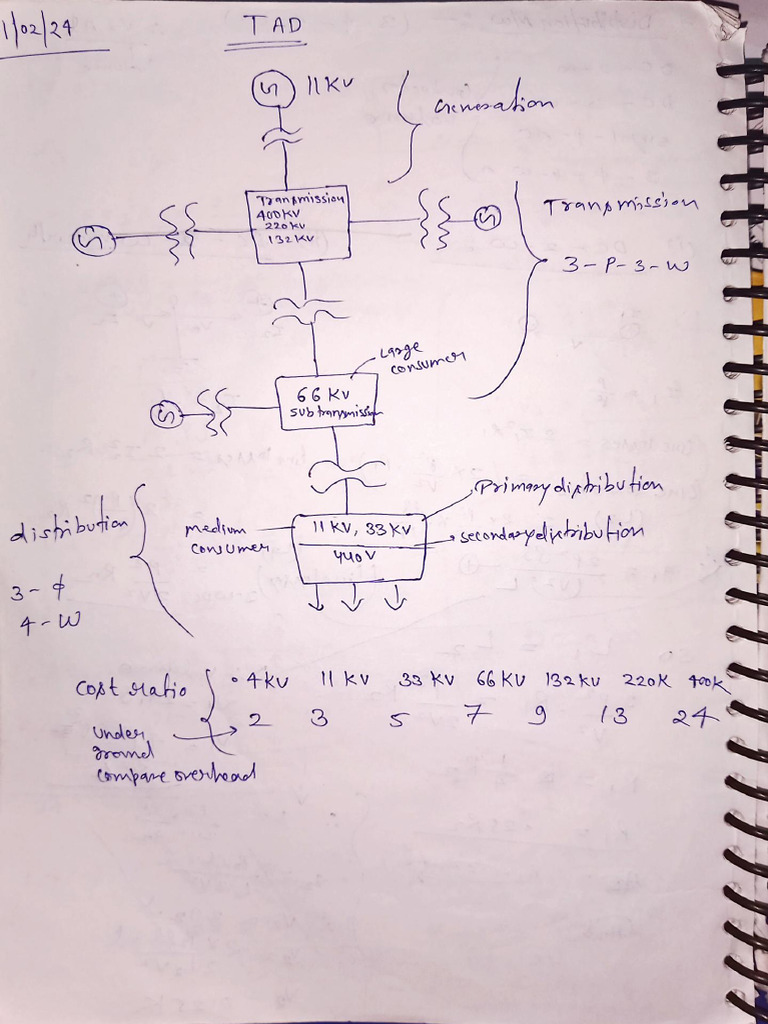 1/02/24
TAD
11 KV
Generation
Transmission
400KV
220KV
132KV
Transmission
3-P-3-W
Large
consumer
66 KV
Subtransmission
Primary distribution
distribution
medium
consumer
11 KV, 33 KV
secondary distribution
440V
3-ϕ
4-W
Cost ratio
.4KV 11 KV 33 KV 66 KV 132KV 220K 400K
2 3 5 7 9 13 24
under
ground
compare overhead